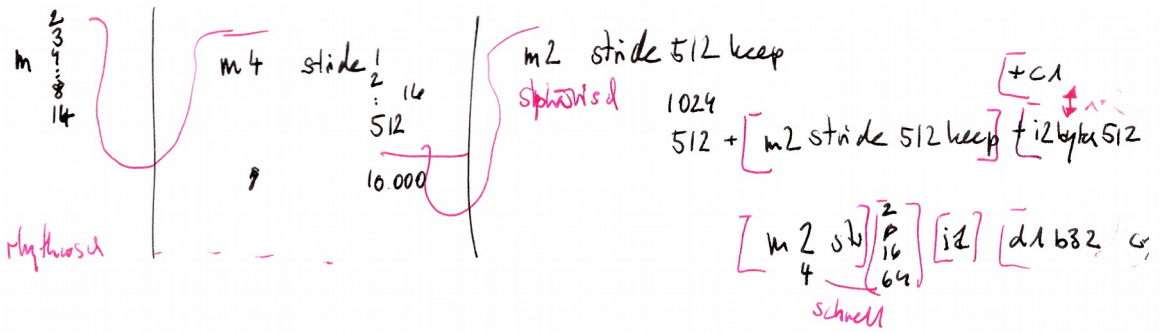 m 2
3
4
⋮
8
14
rhythmisch
m4 stride 1
2
⋮ 16
512
10.000
m2 stride 512 keep
sphärisch
1024
512 + [m2 stride 512 keep] [+i2byte512
[+c1
[m 2 str] [2
4
8
16
64] [i1] [d1 b32
schnell